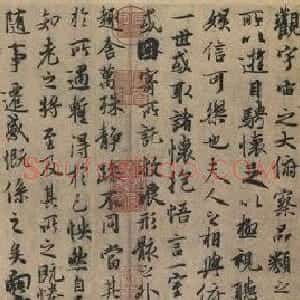 觀宇宙之大俯察品類之
所以遊目騁懷足以極視聽
娛信可樂也夫人之相與俯
一世或取諸懷抱悟言一室
或因寄所託放浪形骸之外
趣舍萬殊靜躁不同當其
於所遇暫得於己怏然自
知老之將至及其所之既惓
隨事遷感慨係之矣向